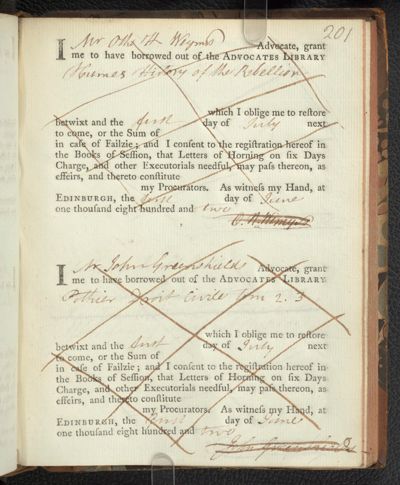 201
I Mr Otho H Wemyss Advocate, grant
me to have borrowed out of the ADVOCATES LIBRARY
Humes History of the Rebellion
which I oblige me to reſtore
betwixt and the first day of July next
to come, or the Sum of
in caſe of Failzie; and I conſent to the regiſtration hereof in
the Books of Seſſion, that Letters of Horning on ſix Days
Charge, and other Executorials needful, may paſs thereon, as
effeirs, and thereto conſtitute
my Procurators. As witneſs my Hand, at
EDINBURGH, the first day of June
one thouſand eight hundred and two
O. H. Wemyss
I Mr John Greenshields Advocate, grant
me to have borrowed out of the ADVOCATES LIBRARY
Pothier Droit Civile Tom 2. 3
which I oblige me to reſtore
betwixt and the first day of July next
to come, or the Sum of
in caſe of Failzie; and I conſent to the regiſtration hereof in
the Books of Seſſion, that Letters of Horning on ſix Days
Charge, and other Executorials needful, may paſs thereon, as
effeirs, and thereto conſtitute
my Procurators. As witneſs my Hand, at
EDINBURGH, the first day of June
one thouſand eight hundred and two
John Greenshields